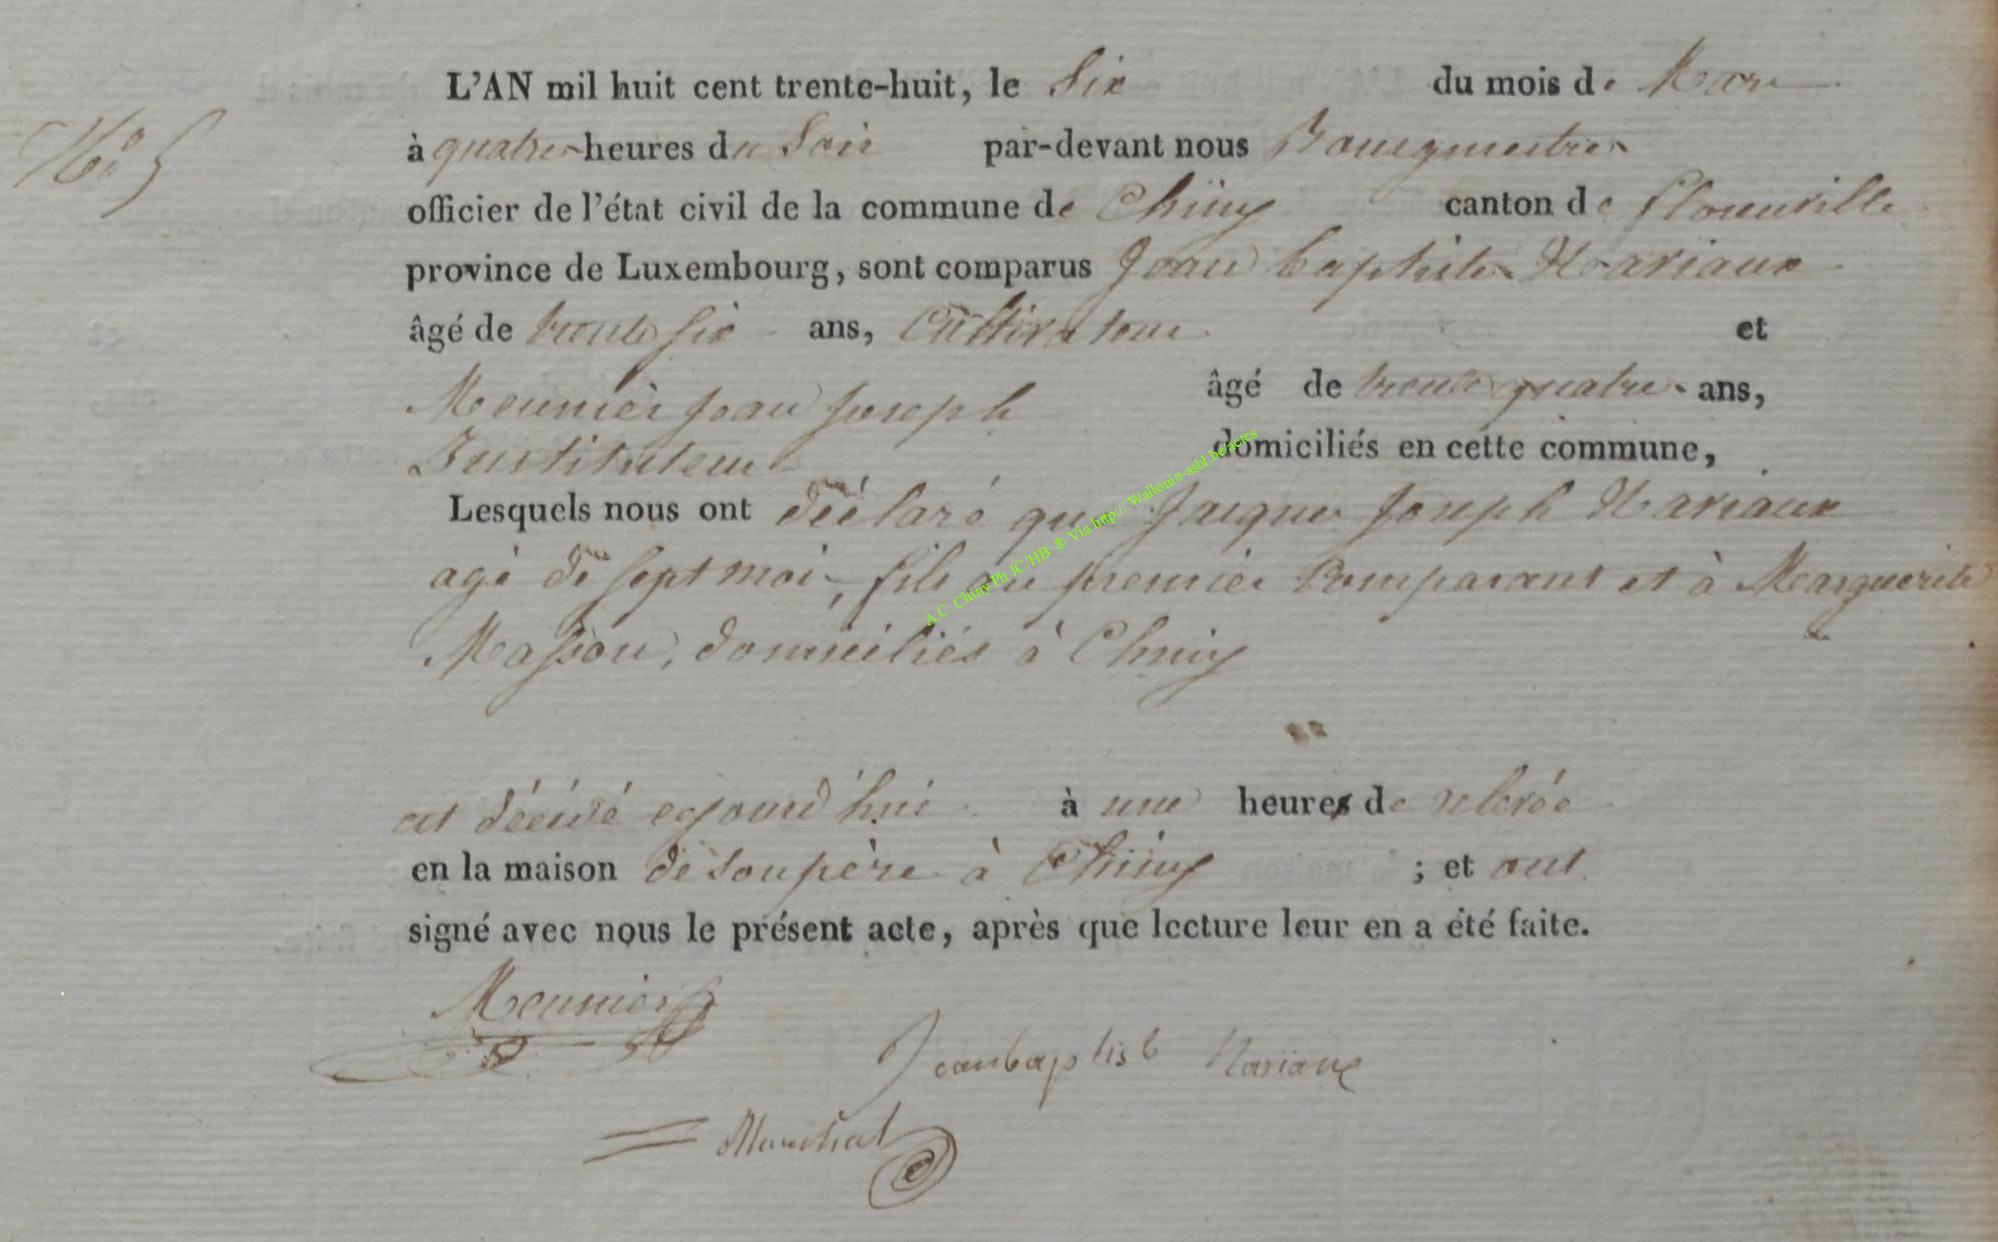 L'AN mil huit cent trente-huit, le Six du mois de Mars
N° 5
à quatre heures du Soir par-devant nous Bourgmestre
officier de l'état civil de la commune de Chiny canton de florenville
province de Luxembourg, sont comparus Jean baptiste Hariaux
âgé de trente six ans, Cultivateur et
Meunier Jean Joseph âgé de trente quatre ans,
Instituteur domiciliés en cette commune,
Lesquels nous ont déclaré que Jacques Joseph Hariaux
agé de sept mois, fils du premier Comparant et à Marguerite
Masson, domiciliés à Chiny
est décédé aujourd'hui à une heure de relevée
en la maison de son père à Chiny ; et ont
signé avec nous le présent acte, après que lecture leur en a été faite.
Meunier
Jeanbaptist Hariaux
Marchal
A.C. Chiny Ph JC/HB ® Via http://Wallonia-asbl.be/actes